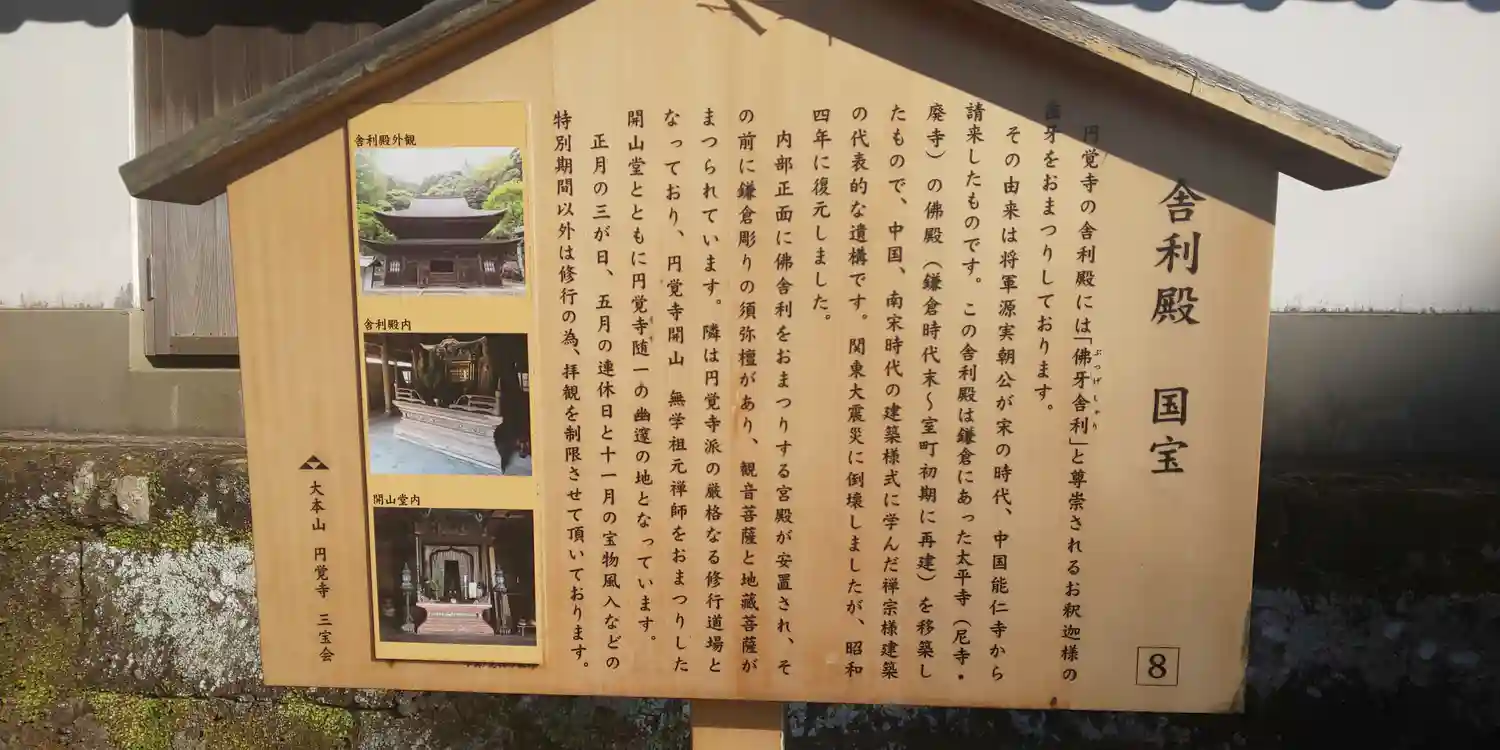 舎利殿 国宝
円覚寺の舎利殿には「佛牙舎利」と尊崇されるお釈迦様の
ぶつげしゃり
歯牙をおまつりしております。
その由来は将軍源実朝公が宋の時代、中国能仁寺から
請来したものです。この舎利殿は鎌倉にあった太平寺(尼寺・
廃寺)の佛殿(鎌倉時代末〜室町初期に再建)を移築し
たもので、中国、南宋時代の建築様式に学んだ禅宗様建築
の代表的な遺構です。関東大震災に倒壊しましたが、昭和
四年に復元しました。
内部正面に佛舎利をおまつりする宮殿が安置され、そ
の前に鎌倉彫りの須弥檀があり、観音菩薩と地蔵菩薩が
まつられています。隣は円覚寺派の厳格なる修行道場と
なっており、円覚寺開山 無学祖元禅師をおまつりした
開山堂とともに円覚寺随一の幽邃の地となっています。
正月の三が日、五月の連休日と十一月の宝物風入などの
特別期間以外は修行の為、拝観を制限させて頂いております。
舎利殿外観
舎利殿内
開山堂内
大本山 円覚寺 三宝会
8